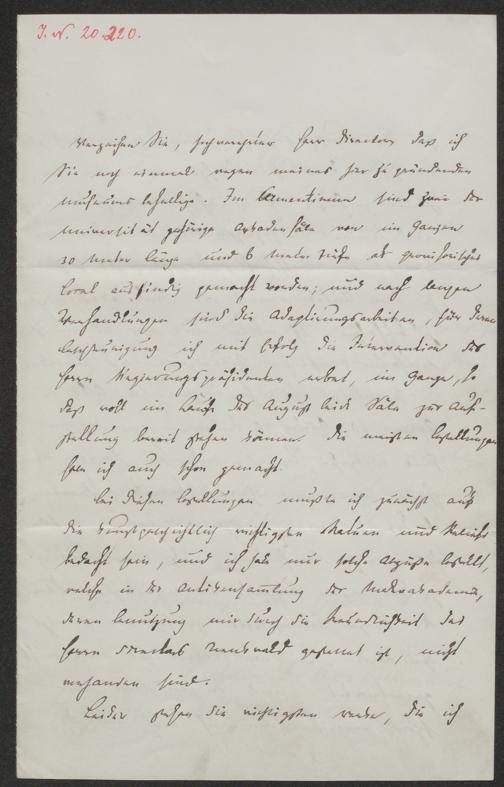 J. N. 20.220.
Verzeihen Sie, hochverehrter Herr Director, daß ich
Sie noch einmal wegen meines hier zu gründenden
Museums behellige. Im Clementinum sind zwei der
Universität gehörige Arkadensäle von im Ganzen
30 Meter Länge und 6 Meter Tiefe als provisorisches
Local ausfindig gemacht worden; und nach langen
Verhandlungen sind die Adaptierungsarbeiten, für deren
Beschleunigung ich mit Erfolg die Intervention des
Herrn Regierungspräsidenten erbat, im Gange, so
daß wohl im Laufe des August beide Säle zur Auf-
stellung bereit stehen können. Die meisten Bestellungen
habe ich auch schon gemacht.
Bei diesen Bestellungen mußte ich zunächst auf
die kunstgeschichtlich wichtigsten Statuen und Reliefs
bedacht sein, und ich habe nur solche Abgüße bestellt,
welche in der Antikensammlung der Malerakademie,
deren Benutzung mir durch die Freundlichkeit des
Herrn Directors Trenkwald gestattet ist, nicht
vorhanden sind.
Leider stehen die wichtigsten Werke, die ich